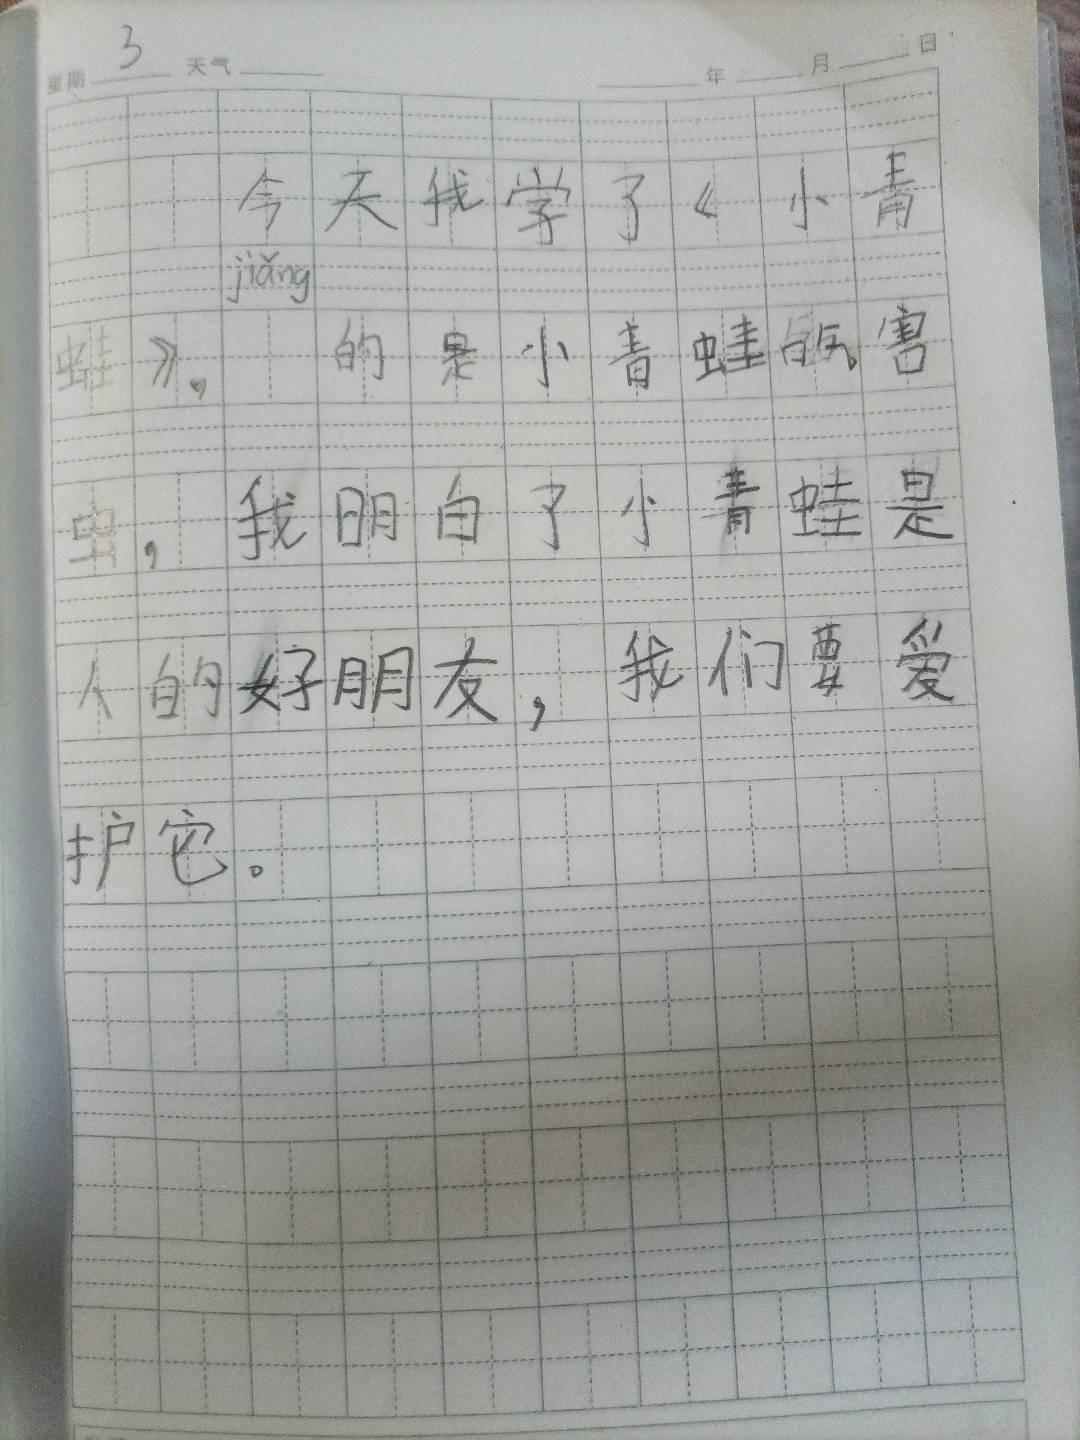 星期 3 天气 年 月 日
今天我学了《小青
jiǎng
蛙》, 的是小青蛙 害
虫,我明白了小青蛙是
人的好朋友,我们要爱
护它。